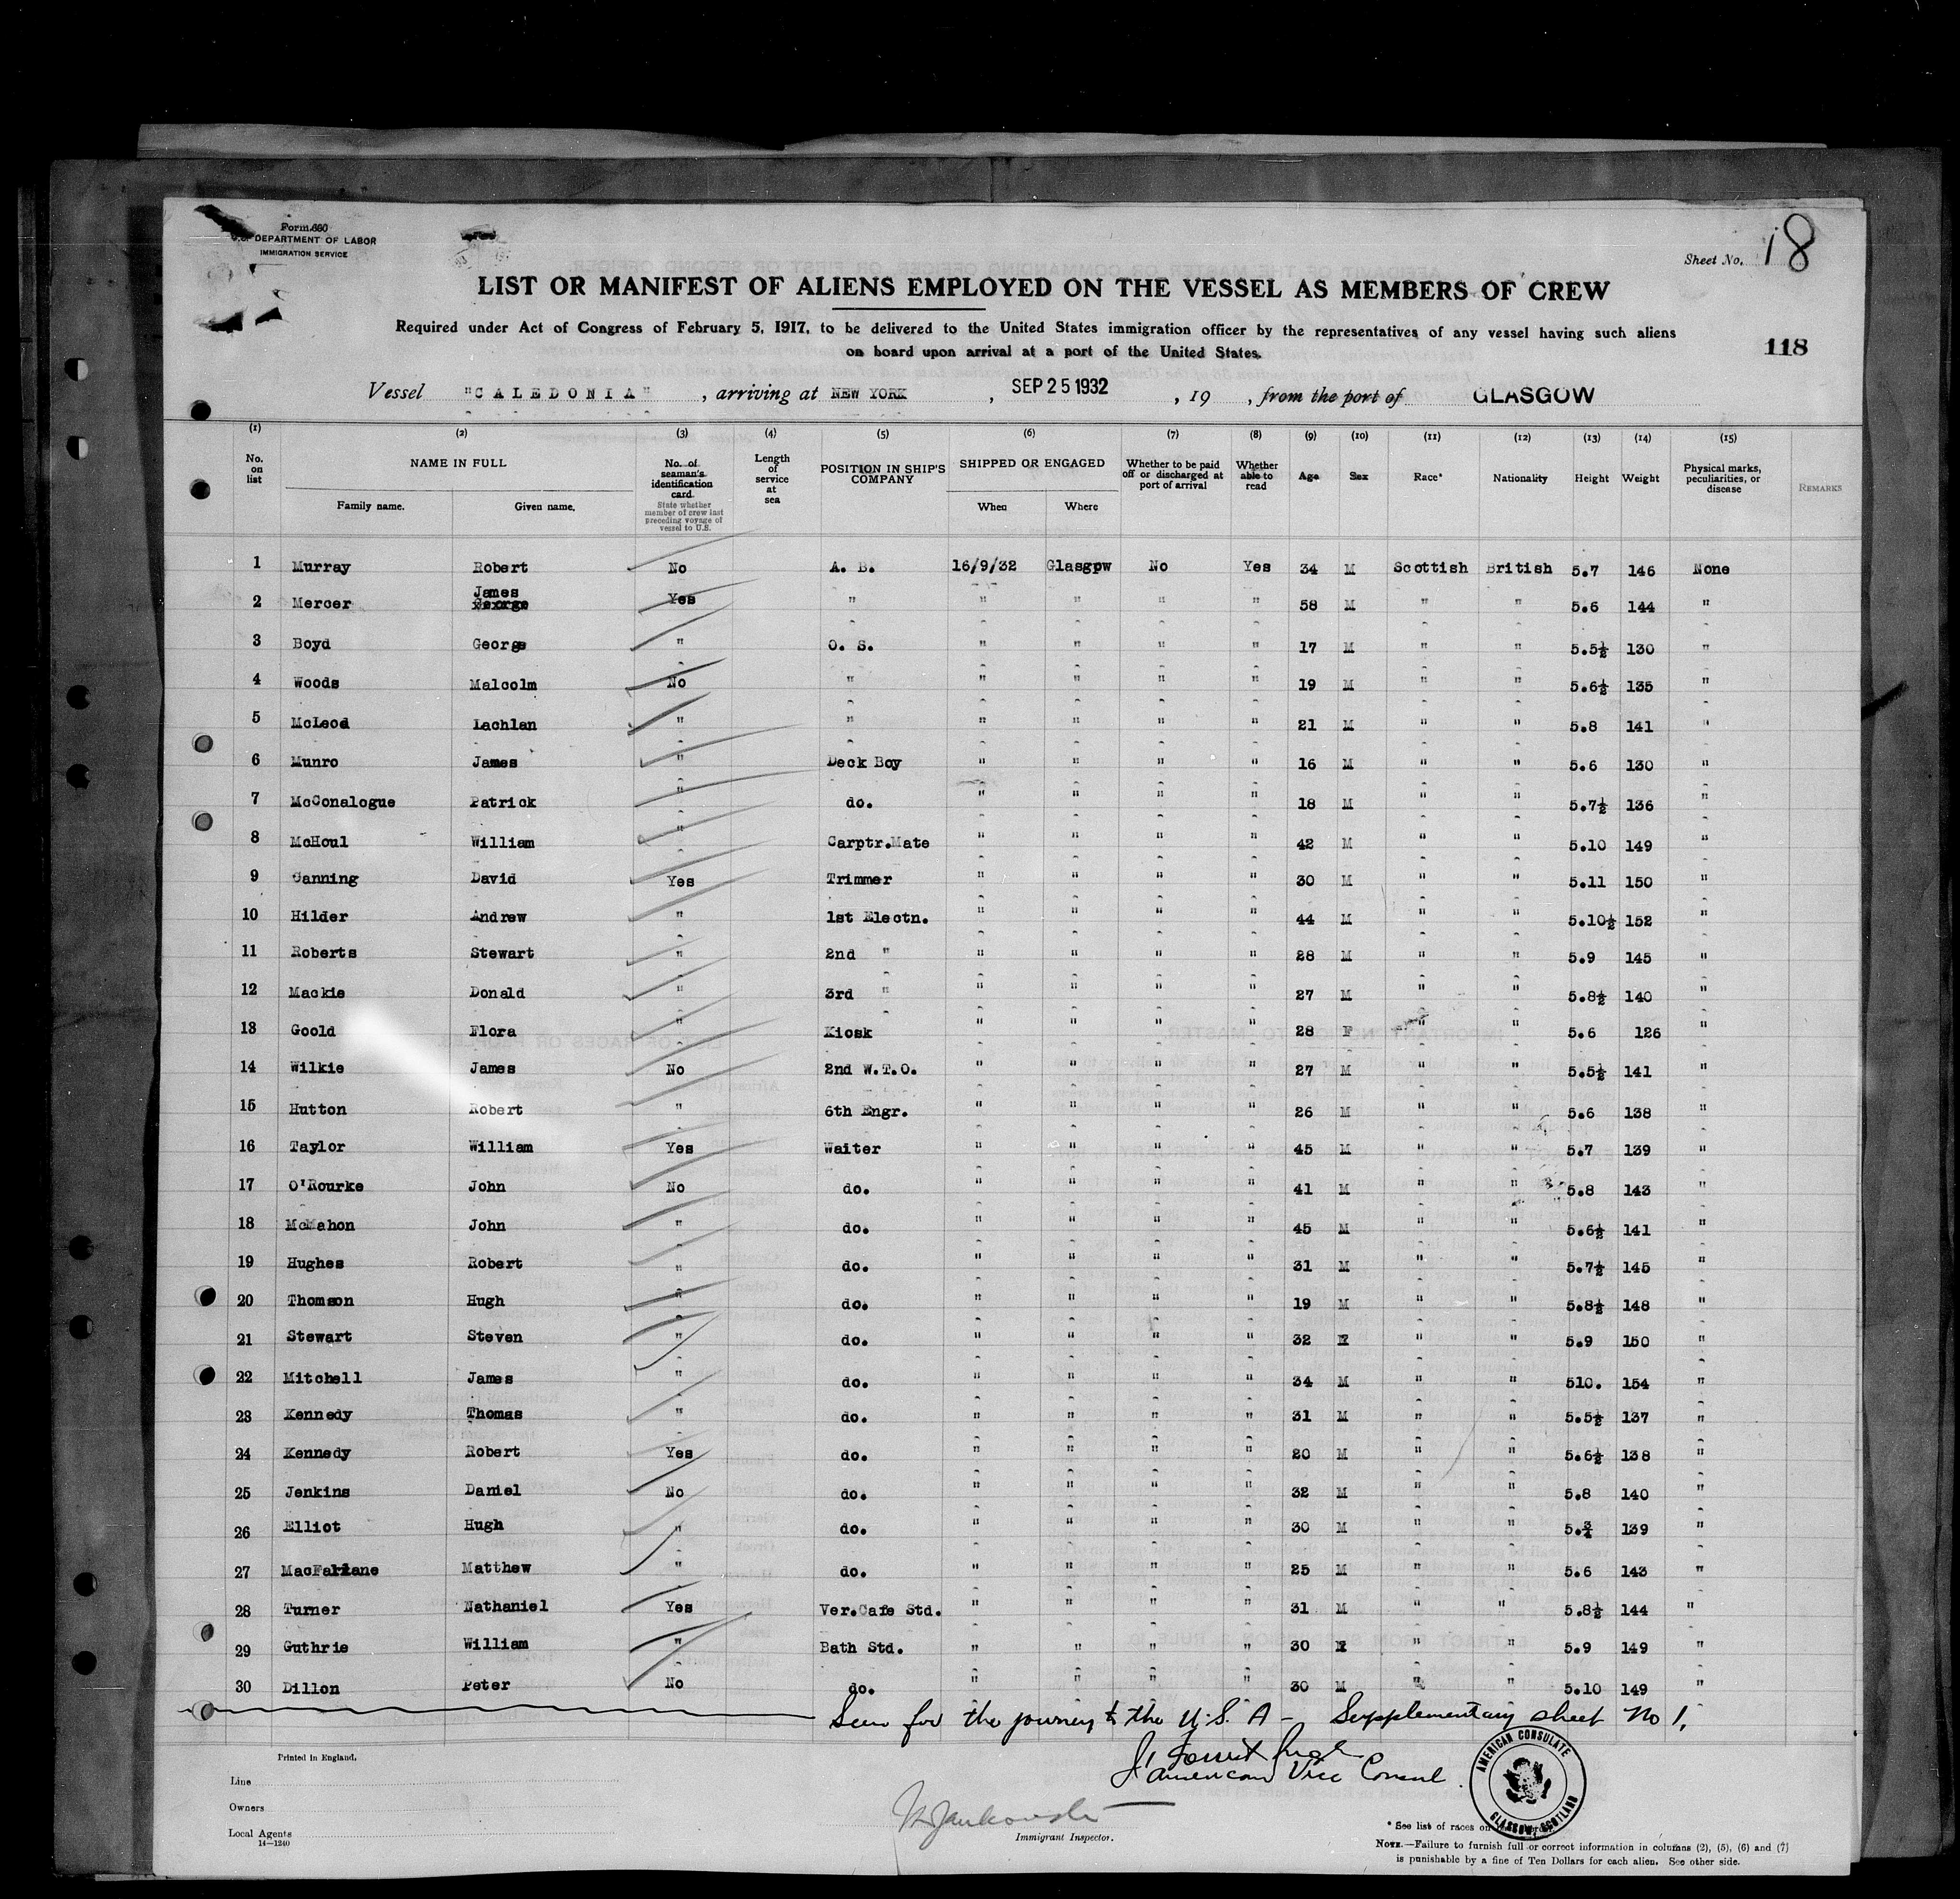 Form 680
U.S. DEPARTMENT OF LABOR
IMMIGRATION SERVICE
Sheet No. 18
LIST OR MANIFEST OF ALIENS EMPLOYED ON THE VESSEL AS MEMBERS OF CREW
Required under Act of Congress of February 5, 1917, to be delivered to the United States immigration officer by the representatives of any vessel having such aliens
on board upon arrival at a port of the United States.
118
Vessel "CALEDONIA", arriving at NEW YORK, SEP 25 1932, 19 , from the port of GLASGOW
(1) (2) (3) (4) (5) (6) (7) (8) (9) (10) (11) (12) (13) (14) (15)
No. on list NAME IN FULL Family name. Given name. No. of seaman's identification card. State whether member of crew last preceding voyage of vessel to U.S. Length of service at sea POSITION IN SHIP'S COMPANY SHIPPED OR ENGAGED When Where Whether to be paid off or discharged at port of arrival Whether able to read Age Sex Race* Nationality Height Weight Physical marks, peculiarities, or disease REMARKS
1 Murray Robert No A. B. 16/9/32 Glasgow No Yes 34 M Scottish British 5.7 146 None
2 Mercer James George Yes " " " " " 58 M " " 5.6 144 "
3 Boyd George " O. S. " " " " 17 M " " 5.5½ 130 "
4 Woods Malcolm No " " " " " 19 M " " 5.6½ 135 "
5 McLeod Lachlan " " " " " " 21 M " " 5.8 141 "
6 Munro James " Deck Boy " " " " 16 M " " 5.6 130 "
7 McConalogue Patrick " do. " " " " 18 M " " 5.7½ 136 "
8 McHoul William " Carptr.Mate " " " " 42 M " " 5.10 149 "
9 Canning David Yes Trimmer " " " " 30 M " " 5.11 150 "
10 Hilder Andrew " 1st Electn. " " " " 44 M " " 5.10½ 152 "
11 Roberts Stewart " 2nd " " " " " 28 M " " 5.9 145 "
12 Mackie Donald " 3rd " " " " " 27 M " " 5.8½ 140 "
13 Goold Flora " Kiosk " " " " 28 F " " 5.6 126 "
14 Wilkie James No 2nd W.T.O. " " " " 27 M " " 5.5½ 141 "
15 Hutton Robert " 6th Engr. " " " " 26 M " " 5.6 138 "
16 Taylor William Yes Waiter " " " " 45 M " " 5.7 139 "
17 O'Rourke John No do. " " " " 41 M " " 5.8 143 "
18 McMahon John " do. " " " " 45 M " " 5.6½ 141 "
19 Hughes Robert " do. " " " " 31 M " " 5.7½ 145 "
20 Thomson Hugh " do. " " " " 19 M " " 5.8½ 148 "
21 Stewart Steven " do. " " " " 32 M " " 5.9 150 "
22 Mitchell James " do. " " " " 34 M " " 510. 154 "
23 Kennedy Thomas " do. " " " " 31 M " " 5.5½ 137 "
24 Kennedy Robert Yes do. " " " " 20 M " " 5.6½ 138 "
25 Jenkins Daniel No do. " " " " 32 M " " 5.8 140 "
26 Elliot Hugh " do. " " " " 30 M " " 5.¾ 139 "
27 MacFarlane Matthew " do. " " " " 25 M " " 5.6 143 "
28 Turner Nathaniel Yes Ver.Cafe Std. " " " " 31 M " " 5.8½ 144 "
29 Guthrie William " Bath Std. " " " " 30 M " " 5.9 149 "
30 Dillon Peter No do. " " " " 30 M " " 5.10 149 "
Seen for the journey to the U.S.A - Supplementary sheet No 1.
American Vice Consul.
AMERICAN CONSULATE GLASGOW, SCOTLAND
Printed in England.
Line
Owners
Local Agents
14—1240
Immigrant Inspector.
* See list of races on
NOTE.—Failure to furnish full or correct information in columns (2), (5), (6) and (7)
is punishable by a fine of Ten Dollars for each alien. See other side.